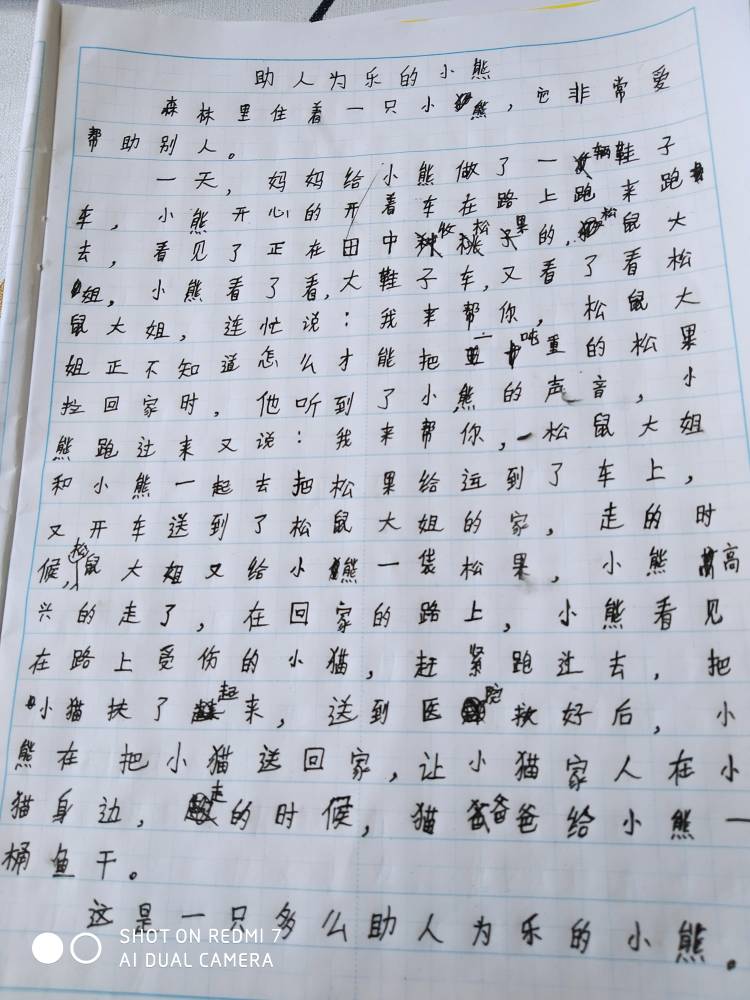 助人为乐的小熊
森林里住着一只小熊，它非常爱
帮助别人。
一天，妈妈给小熊做了一辆鞋子
车，小熊开心的开着车在路上跑来跑
去，看见了正在田中收松果的，松鼠大
姐，小熊看了看，大鞋子车，又看了看松
鼠大姐，连忙说：我来帮你，松鼠大
姐正不知道怎么才能把一吨重的松果
拉回家时，他听到了小熊的声音，小
熊跑过来又说：我来帮你，松鼠大姐
和小熊一起去把松果给运到了车上，
又开车送到了松鼠大姐的家，走的时
候，松鼠大姐又给小熊一袋松果，小熊高
兴的走了，在回家的路上，小熊看见
在路上受伤的小猫，赶紧跑过去，把
小猫扶了起来，送到医院救好后，小
熊在把小猫送回家，让小猫家人在小
猫身边，走的时候，猫爸爸给小熊一
桶鱼干。
这是一只多么助人为乐的小熊。
SHOT ON REDMI 7
AI DUAL CAMERA